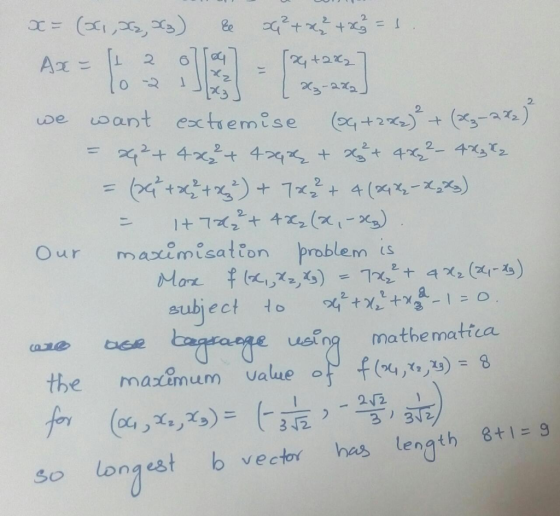 x = (x₁, x₂, x₃) & x₁² + x₂² + x₃² = 1.
Ax = [1 2 0; 0 -2 1] [x₁; x₂; x₃] = [x₁+2x₂; x₃-2x₂]
we want extremise (x₁+2x₂)² + (x₃-2x₂)²
= x₁² + 4x₂² + 4x₁x₂ + x₃² + 4x₂² - 4x₃x₂
= (x₁²+x₂²+x₃²) + 7x₂² + 4(x₁x₂-x₂x₃)
= 1+7x₂² + 4x₂(x₁-x₃).
Our maximisation problem is
Max f(x₁,x₂,x₃) = 7x₂² + 4x₂(x₁-x₃)
subject to x₁²+x₂²+x₃²-1 = 0.
using mathematica
the maximum value of f(x₁,x₂,x₃) = 8
for (x₁,x₂,x₃) = (-1/3√2, -2√2/3, 1/3√2)
so longest b vector has length 8+1 = 9